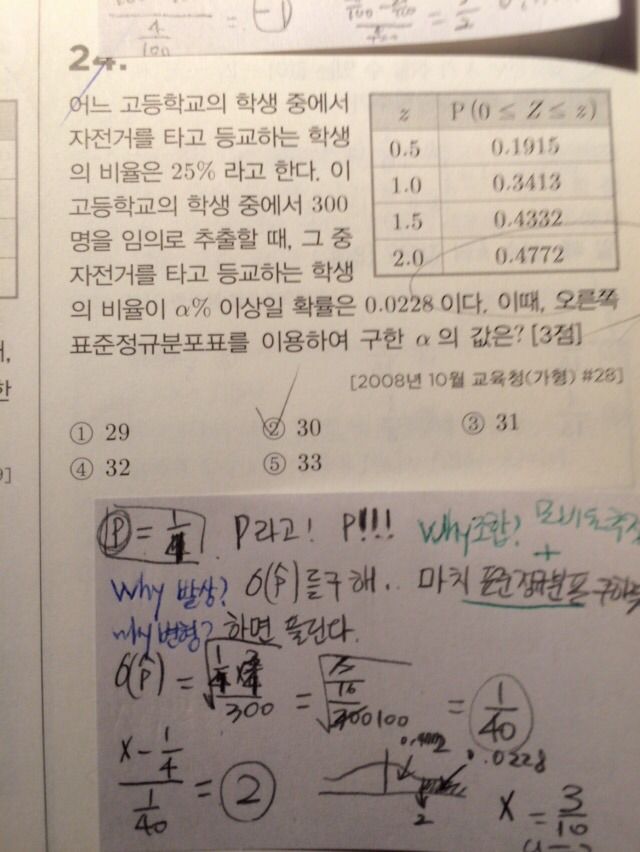 4
100
= -1
24.
어느 고등학교의 학생 중에서
자전거를 타고 등교하는 학생
의 비율은 25% 라고 한다. 이
고등학교의 학생 중에서 300
명을 임의로 추출할 때, 그 중
자전거를 타고 등교하는 학생
의 비율이 α% 이상일 확률은 0.0228 이다. 이때, 오른쪽
표준정규분포표를 이용하여 구한 α 의 값은? [3점]
z P(0 ≤ Z ≤ z)
0.5 0.1915
1.0 0.3413
1.5 0.4332
2.0 0.4772
[2008년 10월 교육청(가형) #28]
① 29 ② 30 ③ 31
④ 32 ⑤ 33
P = 1/4 P라고! P!!! Why 조합?
Why 발상? σ(p̂)를 구해.. 마치 표준정규분포
why 변형? 하면 풀린다.
σ(p̂) = = = 1/40
x - 1/4
1/40
= 2
0.0228
2
x = 3/10